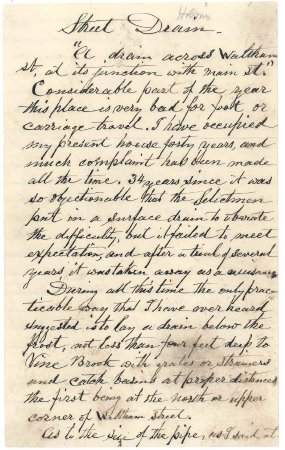 Street Drain.
"A drain across Waltham
st, at its junction with main st."
Considerable part of the year
this place is very bad for foot or
carriage travel. I have occupied
my present house forty years, and
much complaint has been made
all the time. 34 years since it was
so objectionable that the Selectmen
put in a surface drain to obviate
the difficulty, but it failed to meet
expectation, and after a trial of several
years, it was taken away as a nuisance.
During all this time the only prac-
ticable way that I have ever heard
suggested is to lay a drain below the
frost, not less than four feet deep to
Vine Brook with grates or strainers
and catch basins at proper distances
the first being at the north or upper
corner of Waltham street.
As to the size of the pipe, as I said, at